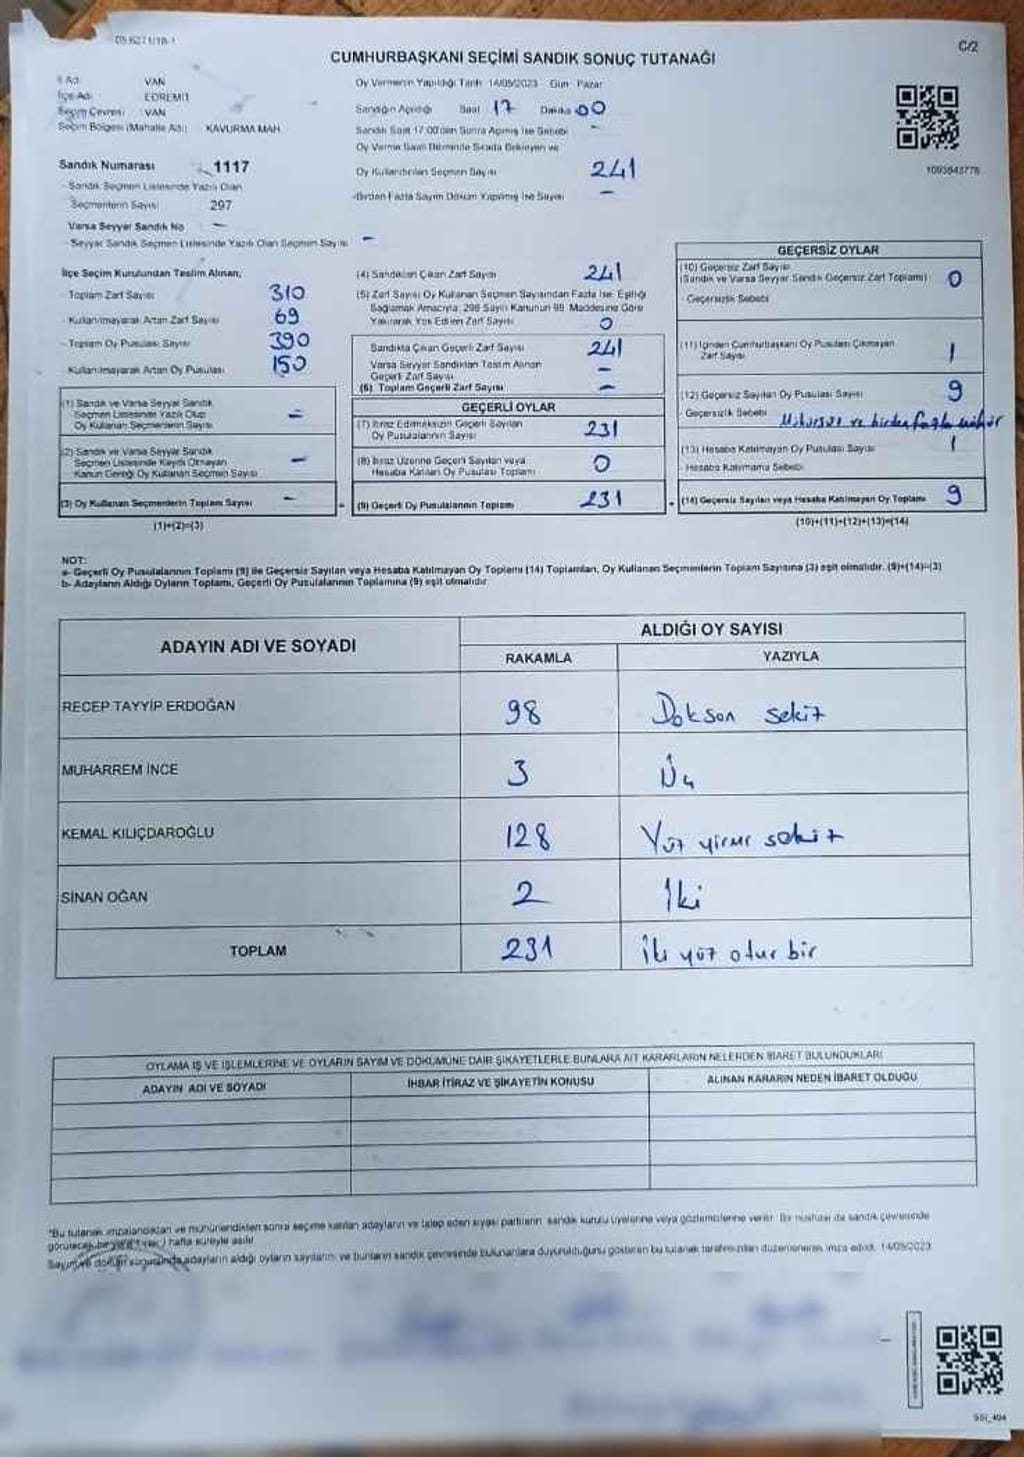 C/2
CUMHURBAŞKANI SEÇİMİ SANDIK SONUÇ TUTANAĞI
İl Adı VAN
İlçe Adı EDREMİT
Seçim Çevresi VAN
Seçim Bölgesi (Mahalle Adı) KAVURMA MAH
Sandık Numarası 1117
- Sandık Seçmen Listesinde Yazılı Olan
Seçmenlerin Sayısı 297
Varsa Seyyar Sandık No -
- Seyyar Sandık Seçmen Listesinde Yazılı Olan Seçmen Sayısı -
Oy Vermenin Yapıldığı Tarih 14/05/2023 Gün Pazar
Sandığın Açıldığı Saat 17 Dakika 00
Sandık Saat 17:00'den Sonra Açılmış İse Sebebi -
Oy Verme İşlemi Bitiminde Sırada Bekleyen ve
Oy Kullandırılan Seçmen Sayısı 241
-Birden Fazla Sayım Döküm Yapılmış İse Sayısı -
1093643778
İlçe Seçim Kurulundan Teslim Alınan,
- Toplam Zarf Sayısı 310
- Kullanılmayarak Artan Zarf Sayısı 69
- Toplam Oy Pusulası Sayısı 390
- Kullanılmayarak Artan Oy Pusulası 150
(1) Sandık ve Varsa Seyyar Sandık
Seçmen Listesinde Yazılı Olup
Oy Kullanan Seçmenlerin Sayısı -
(2) Sandık ve Varsa Seyyar Sandık
Seçmen Listesinde Kaydı Olmayan
Kanun Gereği Oy Kullanan Seçmen Sayısı -
(3) Oy Kullanan Seçmenlerin Toplam Sayısı -
(1)+(2)=(3)
(4) Sandıktan Çıkan Zarf Sayısı 241
(5) Zarf Sayısı Oy Kullanan Seçmen Sayısından Fazla İse: Eşitliği
Sağlamak Amacıyla, 298 Sayılı Kanunun 98. Maddesine Göre
Yakılarak Yok Edilen Zarf Sayısı 0
Sandıkta Çıkan Geçerli Zarf Sayısı 241
Varsa Seyyar Sandıktan Teslim Alınan
Geçerli Zarf Sayısı -
(6) Toplam Geçerli Zarf Sayısı -
GEÇERLİ OYLAR
(7) İtiraz Edilmeksizin Geçerli Sayılan
Oy Pusulalarının Sayısı 231
(8) İtiraz Üzerine Geçerli Sayılan veya
Hesaba Katılan Oy Pusulası Toplamı 0
(9) Geçerli Oy Pusulalarının Toplamı 231
GEÇERSİZ OYLAR
(10) Geçersiz Zarf Sayısı
(Sandık ve Varsa Seyyar Sandık Geçersiz Zarf Toplamı) 0
- Geçersizlik Sebebi
(11) İçinden Cumhurbaşkanı Oy Pusulası Çıkmayan
Zarf Sayısı 1
(12) Geçersiz Sayılan Oy Pusulası Sayısı 9
- Geçersizlik Sebebi Mühürsüz ve birden fazla mühür
(13) Hesaba Katılmayan Oy Pusulası Sayısı 1
- Hesaba Katılmama Sebebi
(14) Geçersiz Sayılan veya Hesaba Katılmayan Oy Toplamı 9
(10)+(11)+(12)+(13)=(14)
NOT:
a- Geçerli Oy Pusulalarının Toplamı (9) ile Geçersiz Sayılan veya Hesaba Katılmayan Oy Toplamı (14) Toplamları, Oy Kullanan Seçmenlerin Toplam Sayısına (3) eşit olmalıdır. (9)+(14)=(3)
b- Adayların Aldığı Oyların Toplamı, Geçerli Oy Pusulalarının Toplamına (9) eşit olmalıdır
ADAYIN ADI VE SOYADI ALDIĞI OY SAYISI
RAKAMLA YAZIYLA
RECEP TAYYİP ERDOĞAN 98 Dokson sekiz
MUHARREM İNCE 3 Üç
KEMAL KILIÇDAROĞLU 128 Yüz yirmi sekiz
SİNAN OĞAN 2 İki
TOPLAM 231 İki yüz otuz bir
OYLAMA İŞ VE İŞLEMLERİNE VE OYLARIN SAYIM VE DÖKÜMÜNE DAİR ŞİKAYETLERLE BUNLARA AİT KARARLARIN NELERDEN İBARET BULUNDUKLARI
ADAYIN ADI VE SOYADI İHBAR İTİRAZ VE ŞİKAYETİN KONUSU ALINAN KARARIN NEDEN İBARET OLDUĞU
*Bu tutanak imzalandıktan ve mühürlendikten sonra seçime katılan adayların ve talep eden siyasi partilerin sandık kurulu üyelerine veya gözlemcilerine verilir. Bir nüshası da sandık çevresinde
görülecek bir yere 1 (bir) hafta süreyle asılır.
Sayım ve döküm sonucunda adayların aldığı oyların sayılarını ve bunların sandık çevresinde bulunanlara duyurulduğunu gösteren bu tutanak tarafımızdan düzenlenerek imza edildi. 14/05/2023